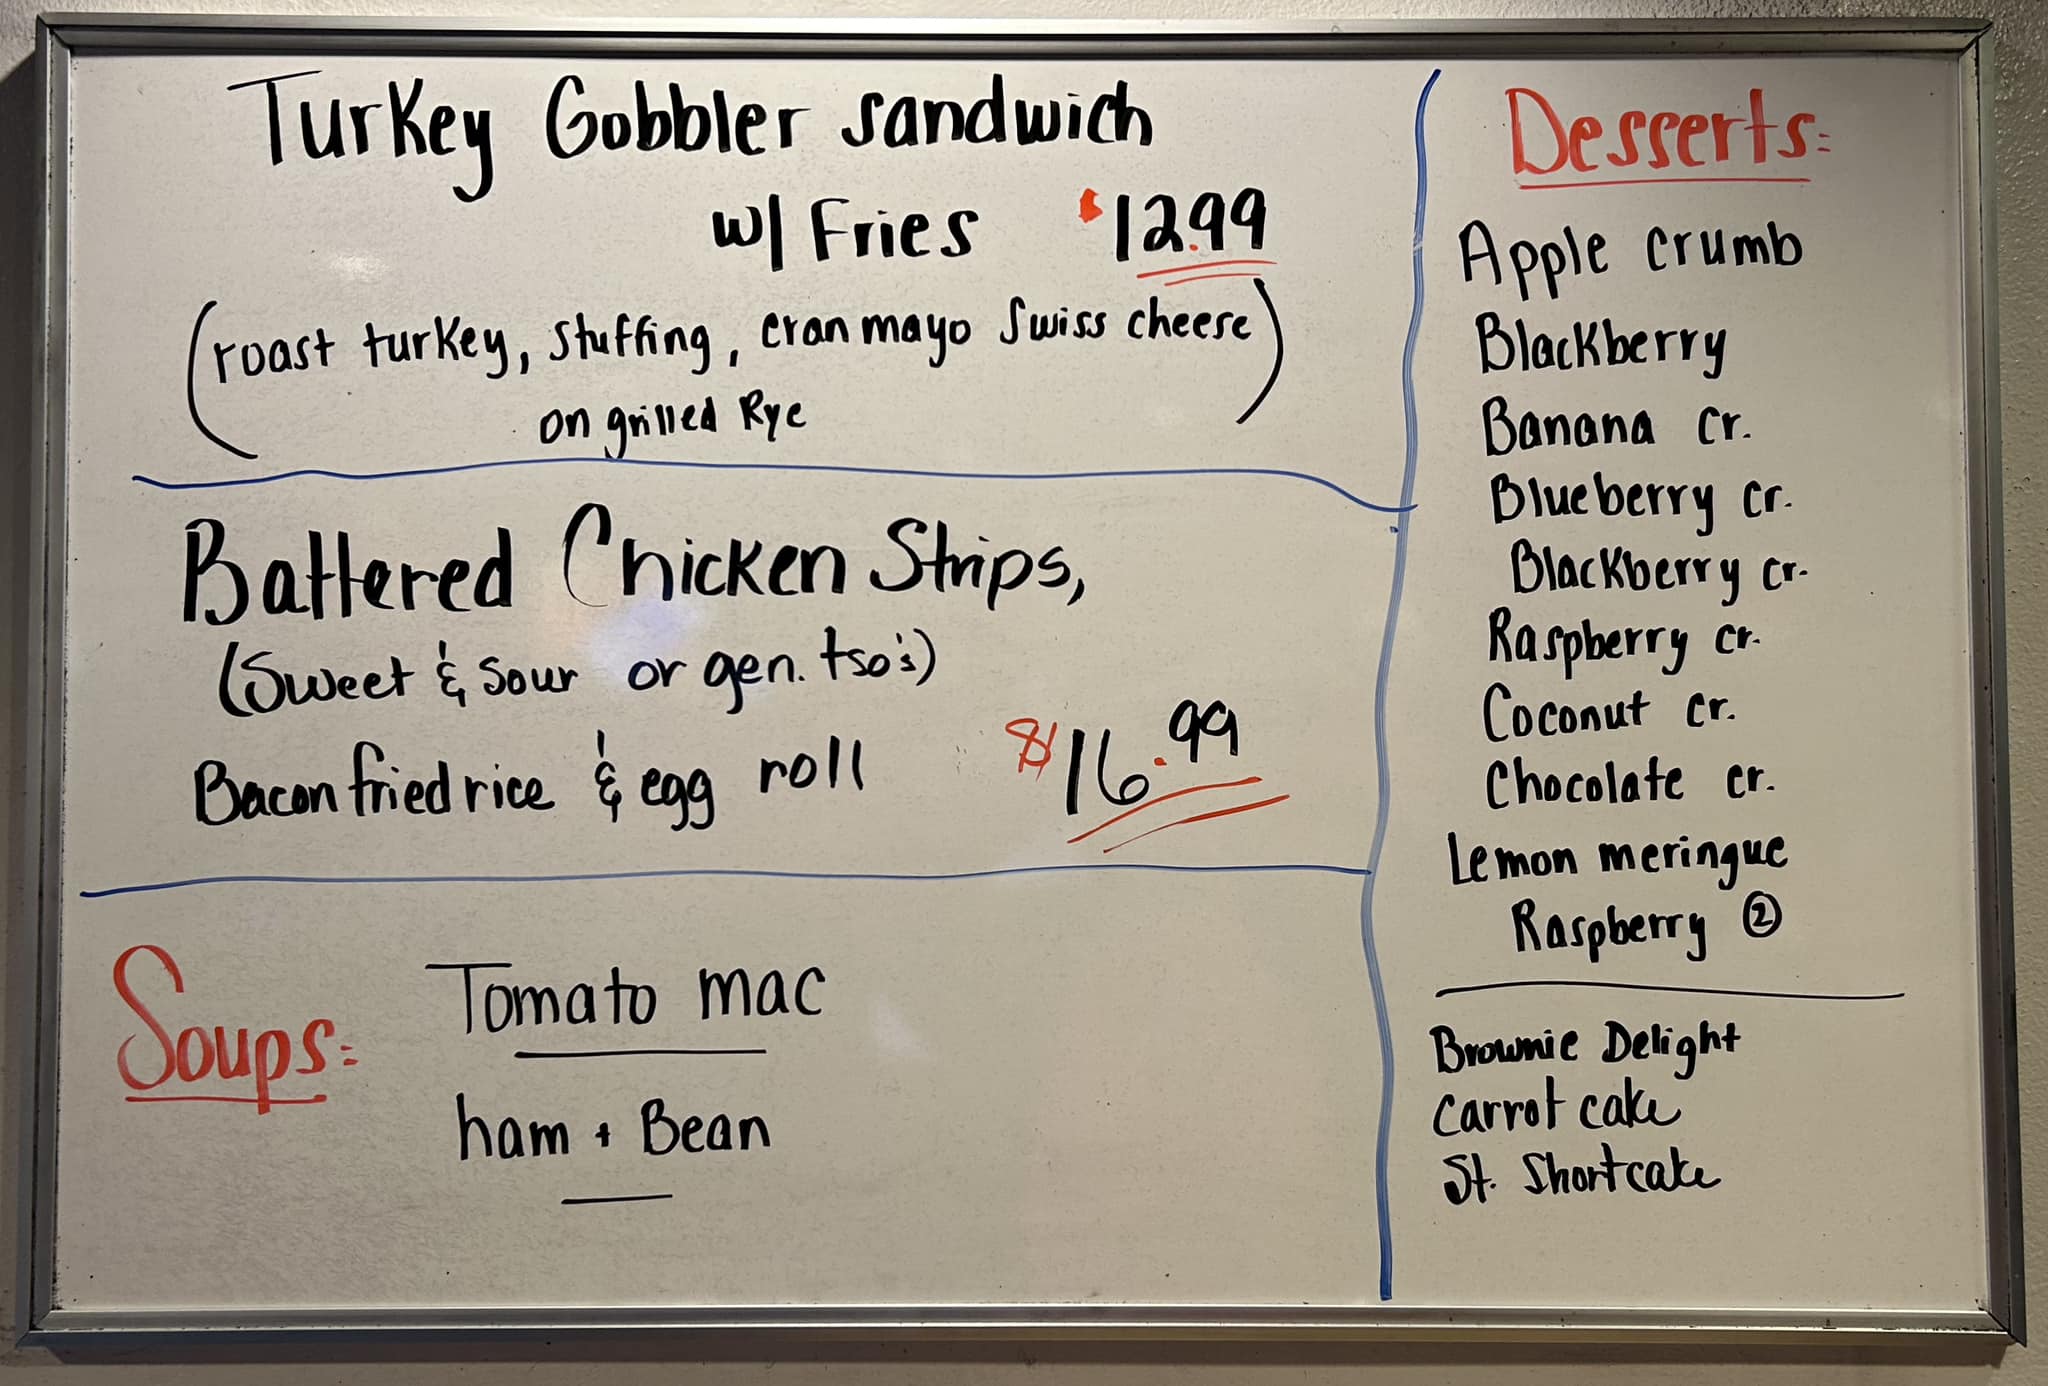 Turkey Gobbler Sandwich
w/ Fries $12.99
(roast turkey, stuffing, cran mayo Swiss cheese
on grilled Rye)
Battered Chicken Strips,
(Sweet & Sour or gen. tso's)
Bacon fried rice & egg roll $16.99
Soups:
Tomato mac
ham + Bean
Desserts:
Apple crumb
Blackberry
Banana cr.
Blueberry cr.
Blackberry cr.
Raspberry cr.
Coconut cr.
Chocolate cr.
Lemon meringue
Raspberry ②
Brownie Delight
Carrot cake
St. Shortcake